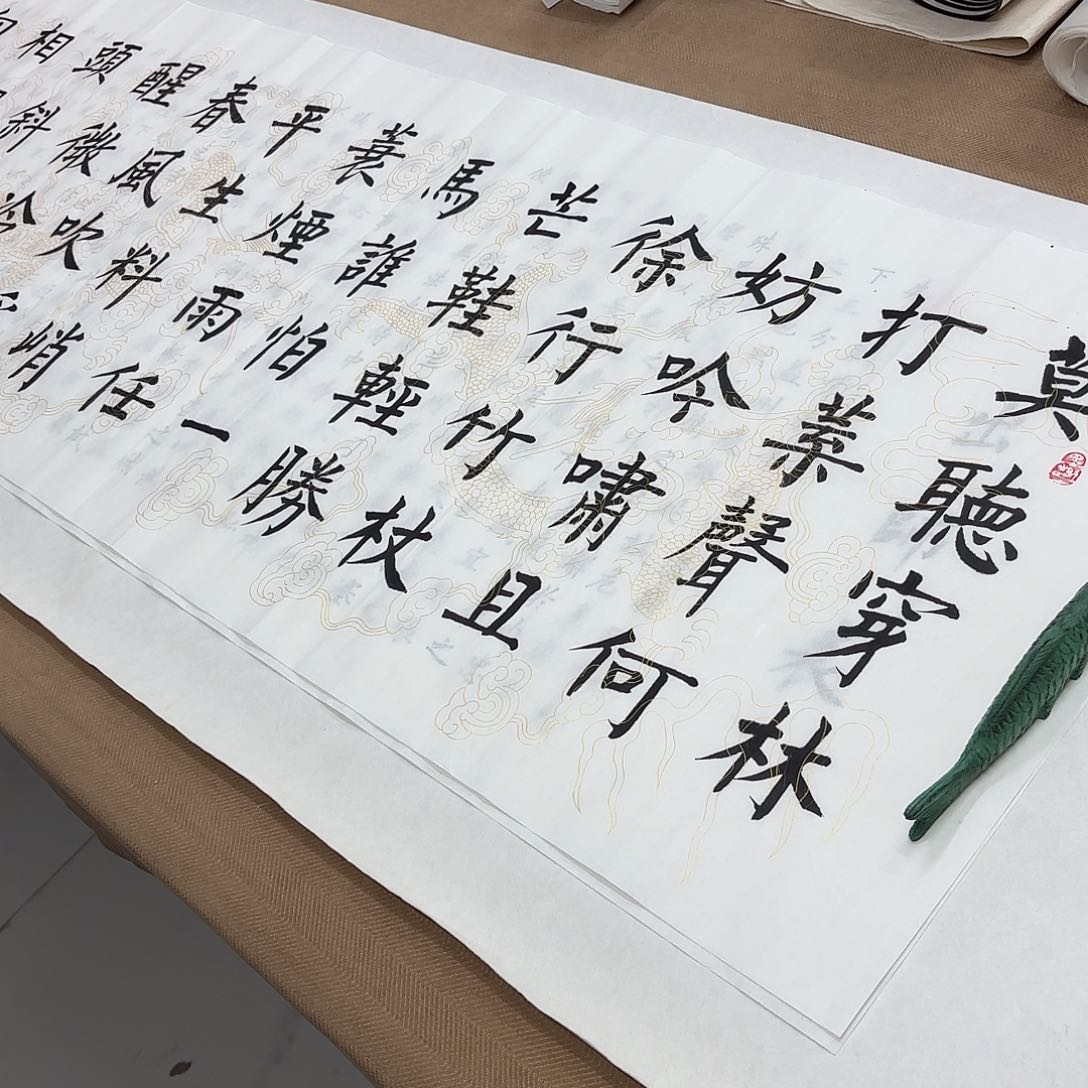 莫聽穿林
打葉聲何
妨吟嘯且
徐行竹杖
芒鞋輕勝
馬誰怕一
蓑煙雨任
平生料峭
春風吹
醒微冷
頭斜
相